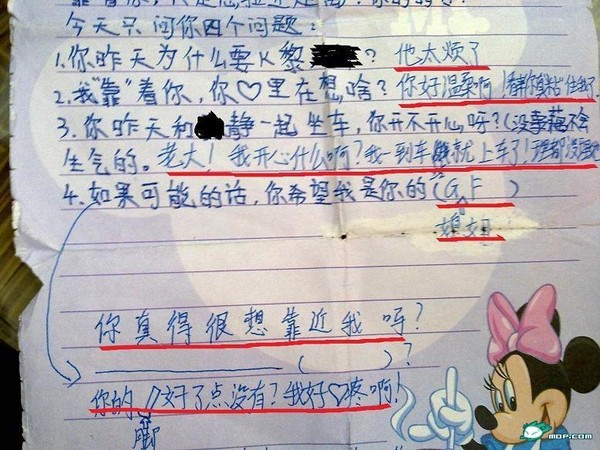 今天只问你四个问题:
1.你昨天为什么要K黎? 他太烦了
2.我"靠"着你,你♡里在想啥? 你好温柔啊!
3.你昨天和静一起坐车,你开不开心呀?(没事 不会
生气的。老大!我开心什么啊?我一到车 就上车了!
4.如果可能的话,你希望我是你的(G.F )
媳妇
你真得很想靠近我呀?
( )?
你的 好了点没有?我好♡疼啊!
脚
MOP.COM